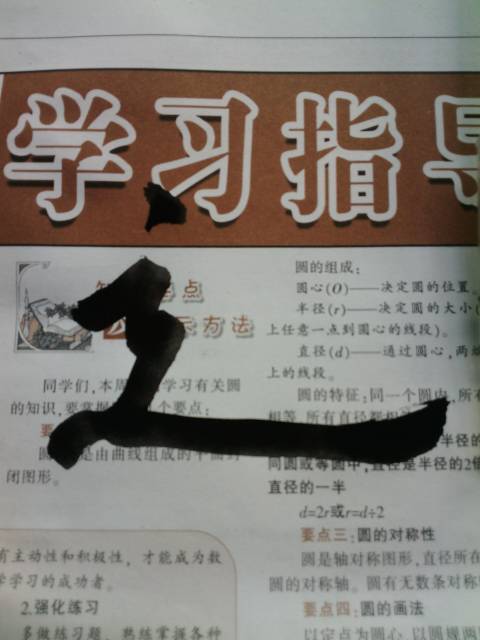 学习指导
同学们,本周 学习有关圆
的知识,要掌握 个要点:
是由曲线组成的平面封
闭图形。
有主动性和积极性,才能成为数
学学习的成功者。
2.强化练习
多做练习题,熟练掌握各种
圆的组成:
圆心(O)——决定圆的位置。
半径(r)——决定圆的大小(
上任意一点到圆心的线段)。
直径(d)——通过圆心,两端
上的线段。
圆的特征:同一个圆内,所有
相等,所有直径都相
半径的
同圆或等圆中,直径是半径的2倍
直径的一半
d=2r或r=d÷2
要点三:圆的对称性
圆是轴对称图形,直径所在
圆的对称轴。圆有无数条对称
要点四:圆的画法
以定点为圆心,以圆规两脚